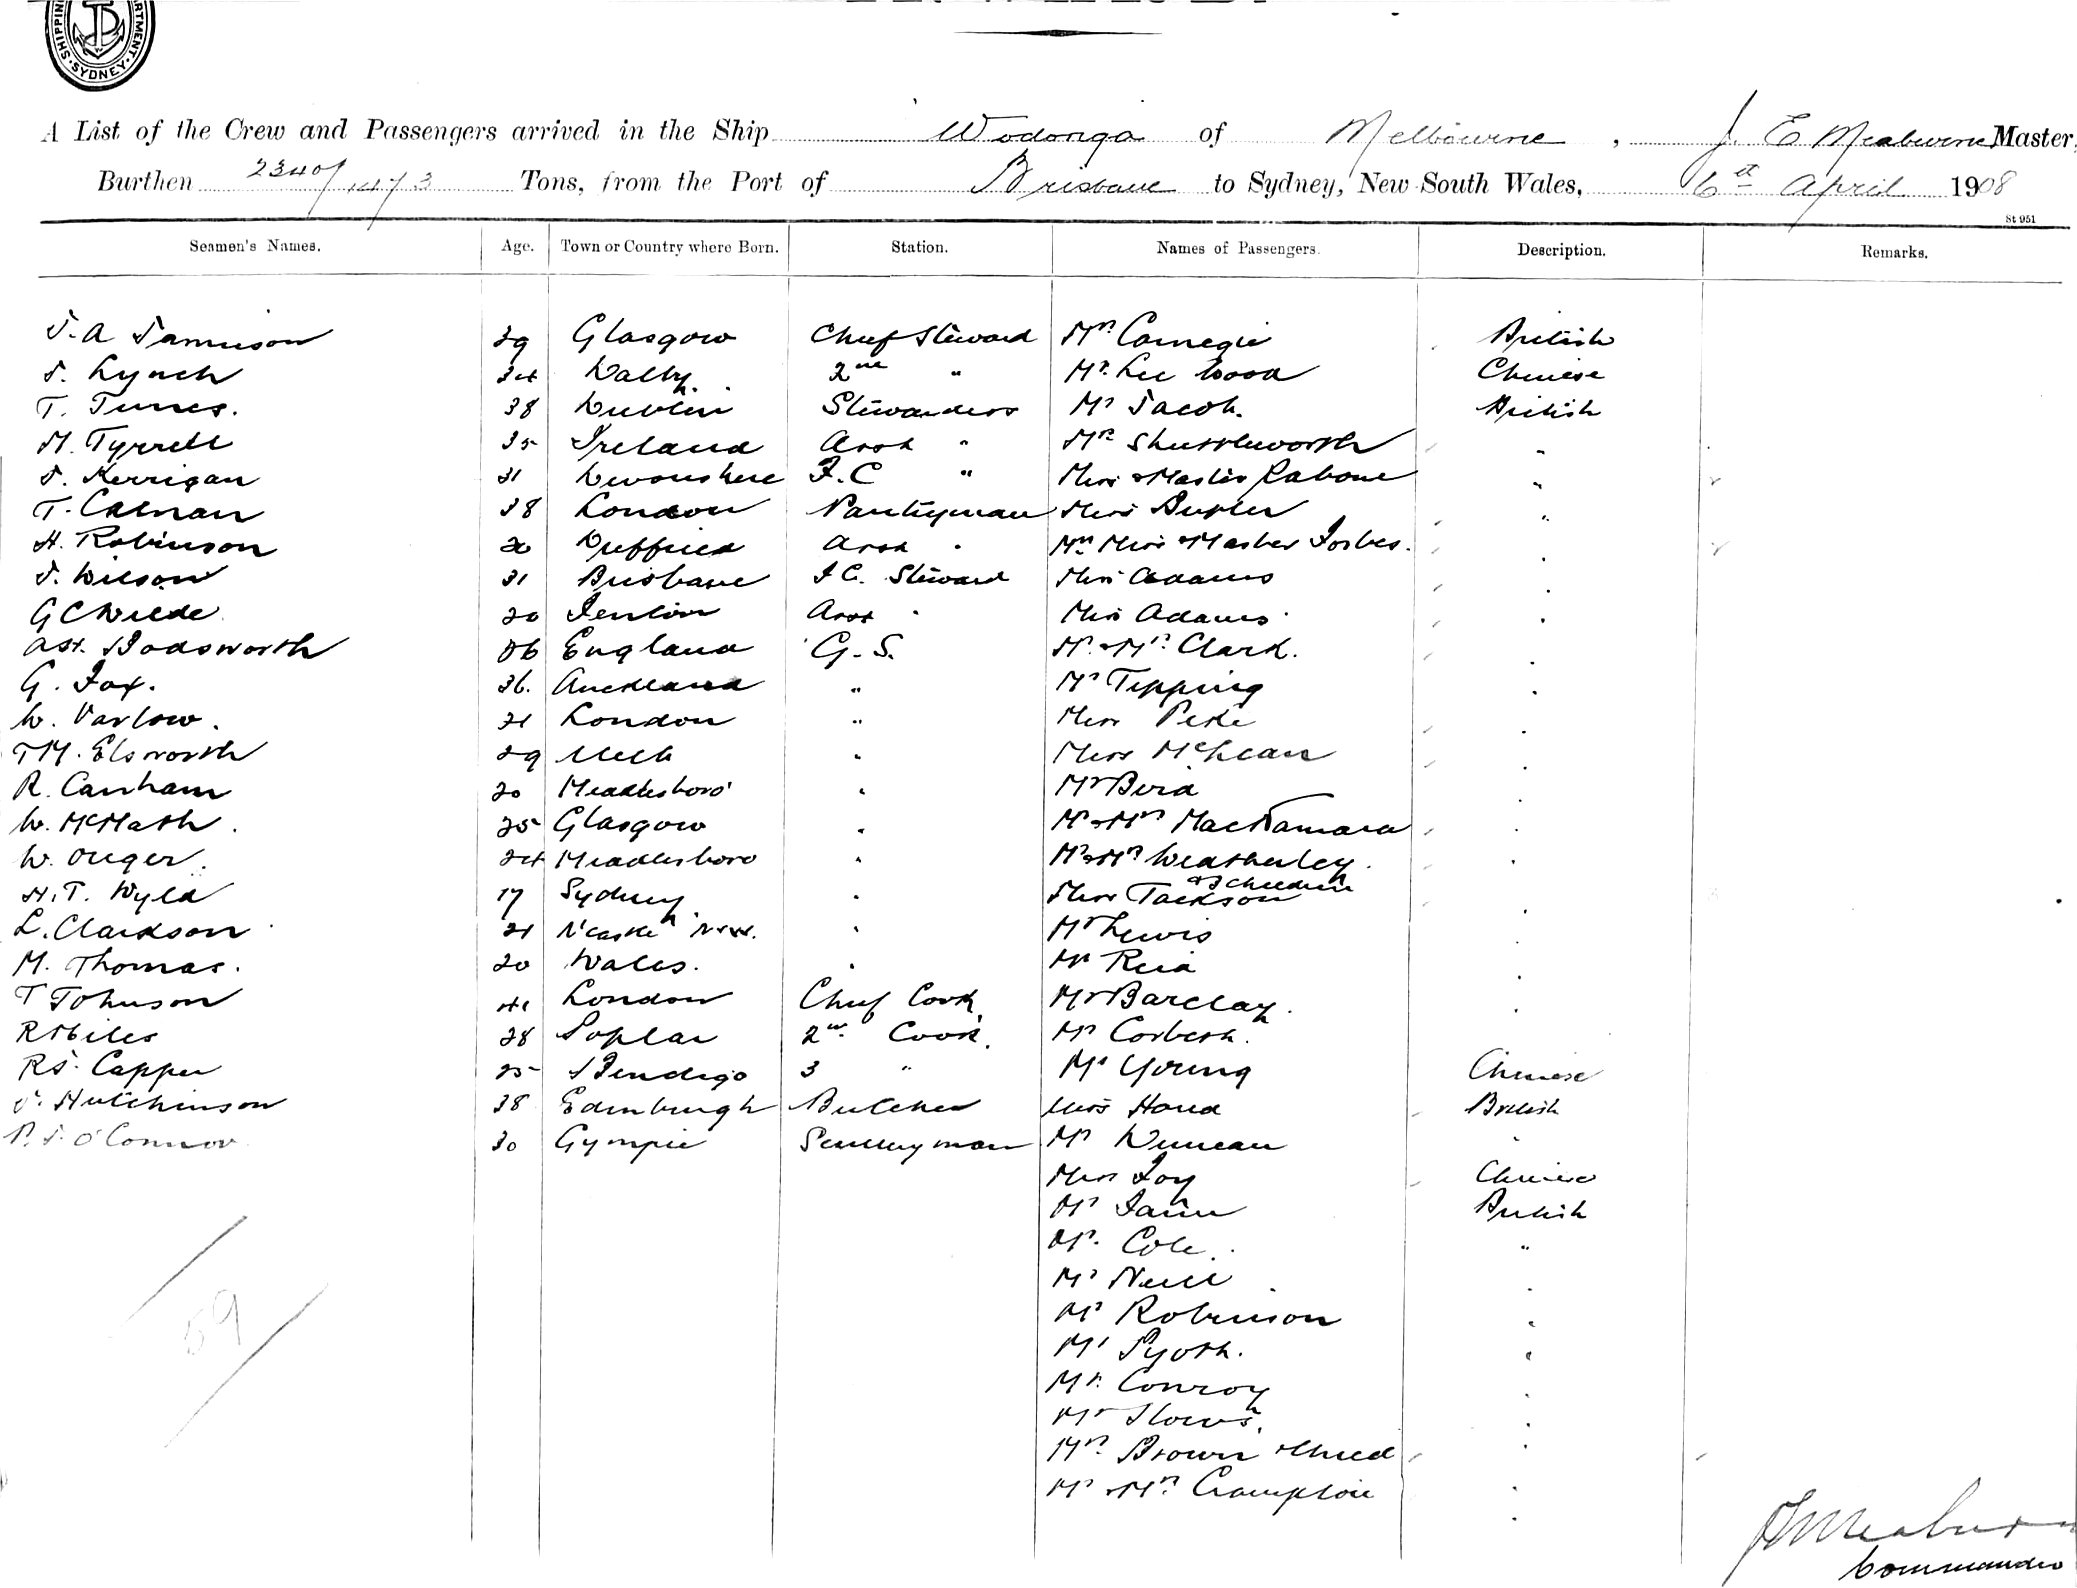 SHIPPING DEPARTMENT SYDNEY
A List of the Crew and Passengers arrived in the Ship Wodonga of Melbourne, J E Meaburn Master,
Burthen 2340/1473 Tons, from the Port of Brisbane to Sydney, New South Wales, 6th April 1908
St 951
Seamen's Names. Age. Town or Country where Born. Station. Names of Passengers. Description. Remarks.
J. A Jamieson 39 Glasgow Chief Steward Mrs Carnegie British
J. Lynch 34 Dalby 2nd " Mr Lee Wood Chinese
38 Dublin Stewardess Mr Jacob. British
M. Tyrrell 35 Ireland Asst " Mrs Shuttleworth "
J. Kerrigan 31 Devonshire F.C " Miss & Master Rabone "
38 London Pantryman Miss Butler "
H. Robinson 20 Asst " Mrs Miss & Master Forbes. "
J. Wilson 31 Brisbane F C. Steward Miss Adams "
G C Wilde 20 Asst " Miss Adams "
Bodsworth 36 England G. S. Mr & Mrs Clark. "
G. Fox. 36. Auckland " Mr Tepping "
W. Varlow. 21 London " Miss "
T M. Elsworth 29 Melb " Miss McLean "
R. Canham 20 Meadlesboro' " Mr Bird "
W. McMath. 25 Glasgow " Mr & Mrs MacNamara "
W. 24 Meadlesboro " Mr & Mrs Weatherley "
H. T. Wyld 17 Sydney " Miss Jackson & 3 Children "
L. Clarkson 21 N'castle NSW. " Mr Lewis "
M. Thomas. 20 Wales. " Mr Reid "
T Johnson 41 London Chief Cook Mr Barclay. "
R Miles 28 Poplar 2nd Cook. Mr Corbett. "
R J. Capper 25 Bendigo 3 " Mr Young Chinese
J. Hutchinson 38 Edinburgh Butcher Miss Hand British
P. J. O'Connor 30 Gympie Sculleryman Mr Duncan "
Miss Foy Chinese
Mr British
Mr. Cole. "
Mr Neill "
Mr Robinson "
Mr "
Mr. Conroy "
Mr "
Mrs. Brown & Child "
59
Mr & Mrs. Crampton "
J E Meaburn
Commander